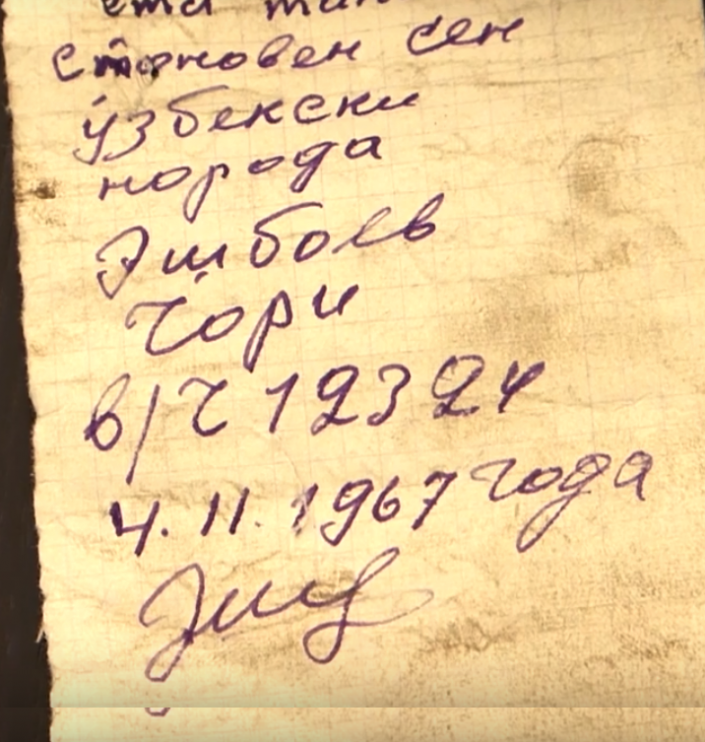 становен сен
ўзбекски
норода
Эшбоев
Чори
в/ч 12324
4.11.1967 года